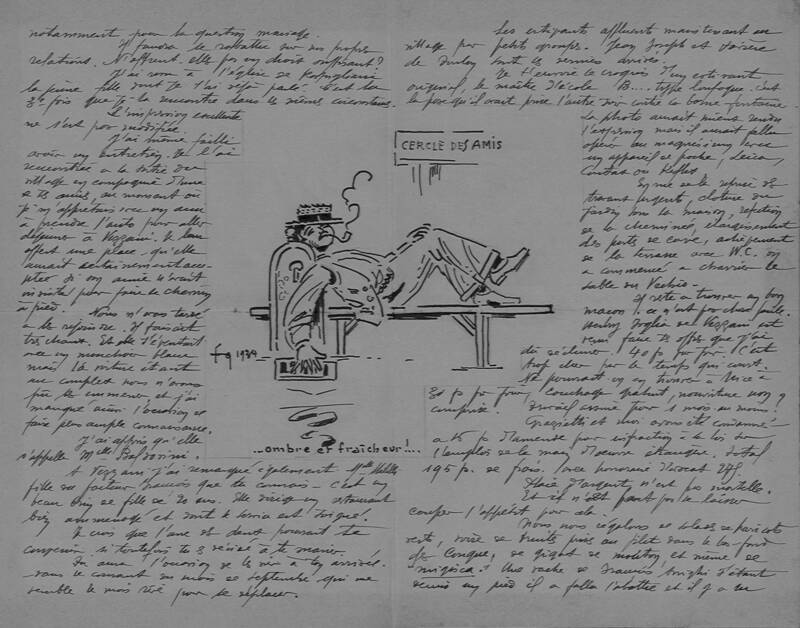 notamment pour la question mariage.
Il faudra se rabattre sur nos propres
relations. N'offrent elle pas un droit
J'ai revu à l'église de
la jeune fille dont je t'ai déjà parlé. C'est la
3e fois que je la rencontre dans les mêmes circonstances.
L'impression excellente
ne s'est pas modifiée.
J'ai même failli
avoir un entretien. Je l'ai
rencontrée à la sortie du
village en compagnie d'une
de ses amies, au moment où
je m'apprêtais avec un ami
à prendre l'auto pour aller
déjeuner à Vezzani. Je leur
offert une place, qu'elle
aurait certainement accep-
ter si son amie n'avait
insisté pour faire le chemin
à pied. Nous n'avons tardé
à la rejoindre. Il faisait
très chaud. Et elle s'éventait
avec un mouchoir blanc
mais la voiture étant
au complet nous n'avons
pu les emmener, et j'ai
manqué ainsi l'occasion de
faire plus ample connaissance.
J'ai appris qu'elle
s'appelle Melle
A Vezzani j'ai remarqué également Melle
fille du facteur que tu connais - c'est un
beau brin de fille de 20 ans. Elle dirige un restaurant
bien aménagé et dont le service est soigné.
Je crois que l'une et deux pourrait te
convenir si toutefois tu te décide à te marier.
Tu auras l'occasion de les voir à ton arrivée
dans le courant du mois de septembre qui me
semble le mois rêvé pour se déplacer.
CERCLE DES AMIS
1939
...ombre et fraîcheur!...
Les estivants affluent maintenant au
village par petits groupes. Jean Joseph et
de sont les derniers arrivés.
Je t'envoie le croquis d'un estivant
original, le maître d'école B.... type loufoque. C'est
la pose qu'il avait prise l'autre soir contre la borne fontaine.
La photo aurait mieux rendu
l'expression mais il aurait fallu
opérer au magnésium avec
un appareil de poche, Leica,
Contax ou Reflex
travaux urgents, cloture du
jardin sous la maison, réfection
de la cheminée, élargissement
des portes de cave, achèvement
de la terrasse avec W.C. on
a commencé à charrier le
sable du Vecchio.
Il reste à trouver un bon
maçon: ce n'est pas chose facile.
de Vezzani est
venu faire ses offres que j'ai
dû décliner. 40 fs par jour. C'est
trop cher par le temps qui court.
Ne pourrait on en trouver à Nice à
30 fs par jour, couchage gratuit, nourriture non
comprise. Travail assuré pour 1 mois au moins.
et moi avons été condamné
à 15 fs d'amende par infraction à la loi sur
l'emploi de la main d'oeuvre étrangère. Total
195 fs. de frais. avec honoraires d'avocat
Plaie d'argent n'est pas mortelle.
Et il n'est pas de laisser
couper l'appétit pour cela.
Nous nous régalons de salade de haricots
verts, voire de truites pris au filet dans le bas-fond
de Conque, de gigot de mouton, et même de
"migisca". Une vache de s'étant
demis un pied il a fallu l'abattre et il y a eu